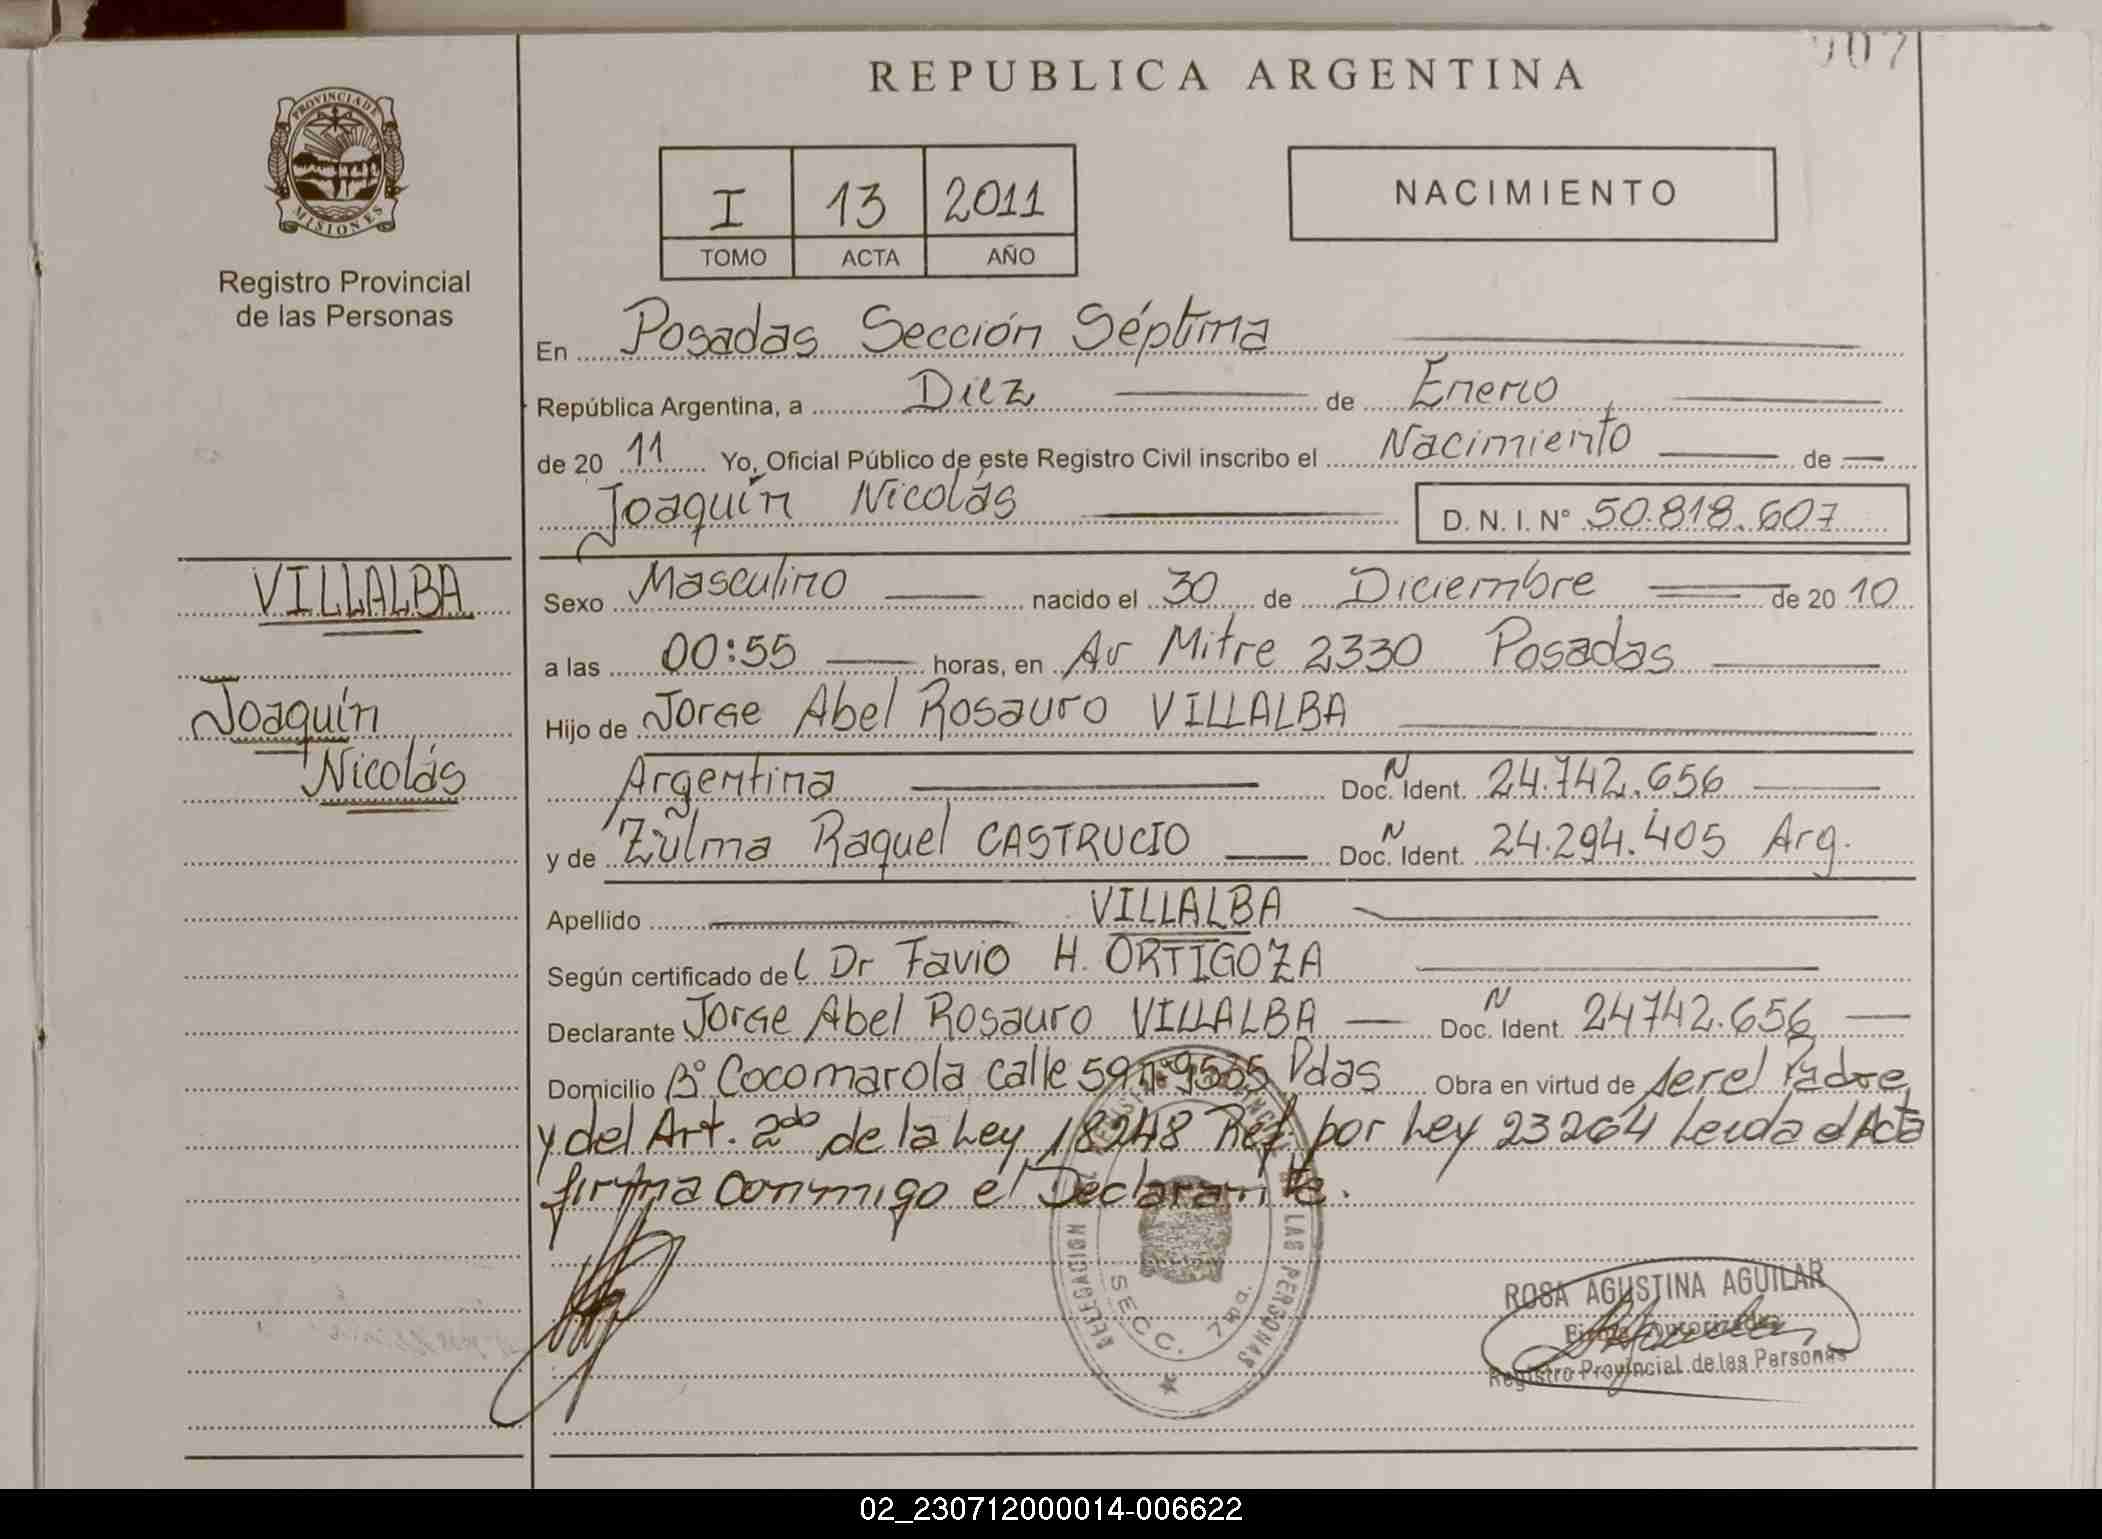 007
REPUBLICA ARGENTINA
PROVINCIA DE
MISIONES
Registro Provincial
de las Personas
I 13 2011
TOMO ACTA AÑO
NACIMIENTO
En Posadas Sección Séptima
República Argentina, a Diez de Enero
de 20 11 Yo, Oficial Público de este Registro Civil inscribo el Nacimiento de
Joaquín Nicolás D. N. I. N° 50.818.607
VILLALBA
Joaquín
Nicolás
Sexo Masculino nacido el 30 de Diciembre de 20 10
a las 00:55 horas, en Av Mitre 2330 Posadas
Hijo de Jorge Abel Rosauro VILLALBA
Argentina Doc. N Ident. 24.742.656
y de Zulma Raquel CASTRUCIO Doc. N Ident. 24.294.405 Arg.
Apellido VILLALBA
Según certificado del Dr Favio H. ORTIGOZA
Declarante Jorge Abel Rosauro VILLALBA Doc. N Ident. 24742.656
Domicilio B° Cocomarola calle 59 n° 9565 Pdas Obra en virtud de ser el Padre
y del Art. 2do de la Ley 18248 Ref. por Ley 23264 Leida el Acta
firma conmigo el Declarante.
DELEGACION
LAS PERSONAS
SECC. 7ma.
ROSA AGUSTINA AGUILAR
Firma Autorizada
Registro Provincial de las Personas
02_230712000014-006622